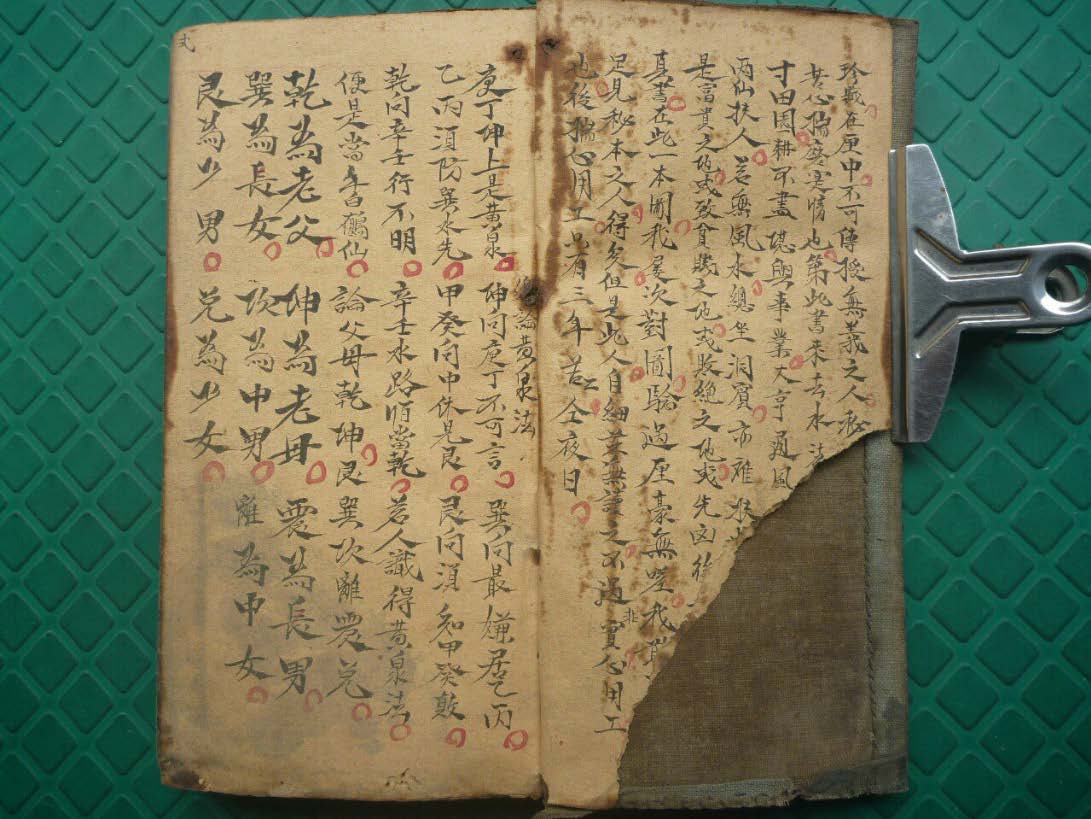 珍藏在厘中不可傳授無義之人秘
苦心揣摩寔情也第此書來去水法
寸田園耕不盡堪輿事業大亨通風
丙仙扶人若無風水總坐洞賓亦难扶
是富貴之地或致貧賤之地或敗絕之地或先凶後
真書在此一本圖我屡次對圖驗過厘豪無差我
足見秘本之人得矣但是此人自細並無讀之不過實心用工
也後揣心用工只有三年苦工仝夜日
論黄泉法
庚丁坤上是黄泉 坤向庚丁不可言 巽向最嫌居乙丙
乙丙須防巽水先 甲癸向中休見艮 艮向須知甲癸
乾向辛壬行不明 辛壬水路怕當乾 若人識得黄泉法
便是當年舊鶴仙 論父母乾坤艮巽坎離震兌
乾為老父 坤為老母 震為長男
巽為長女 坎為中男 離為中女
艮為少男 兌為少女